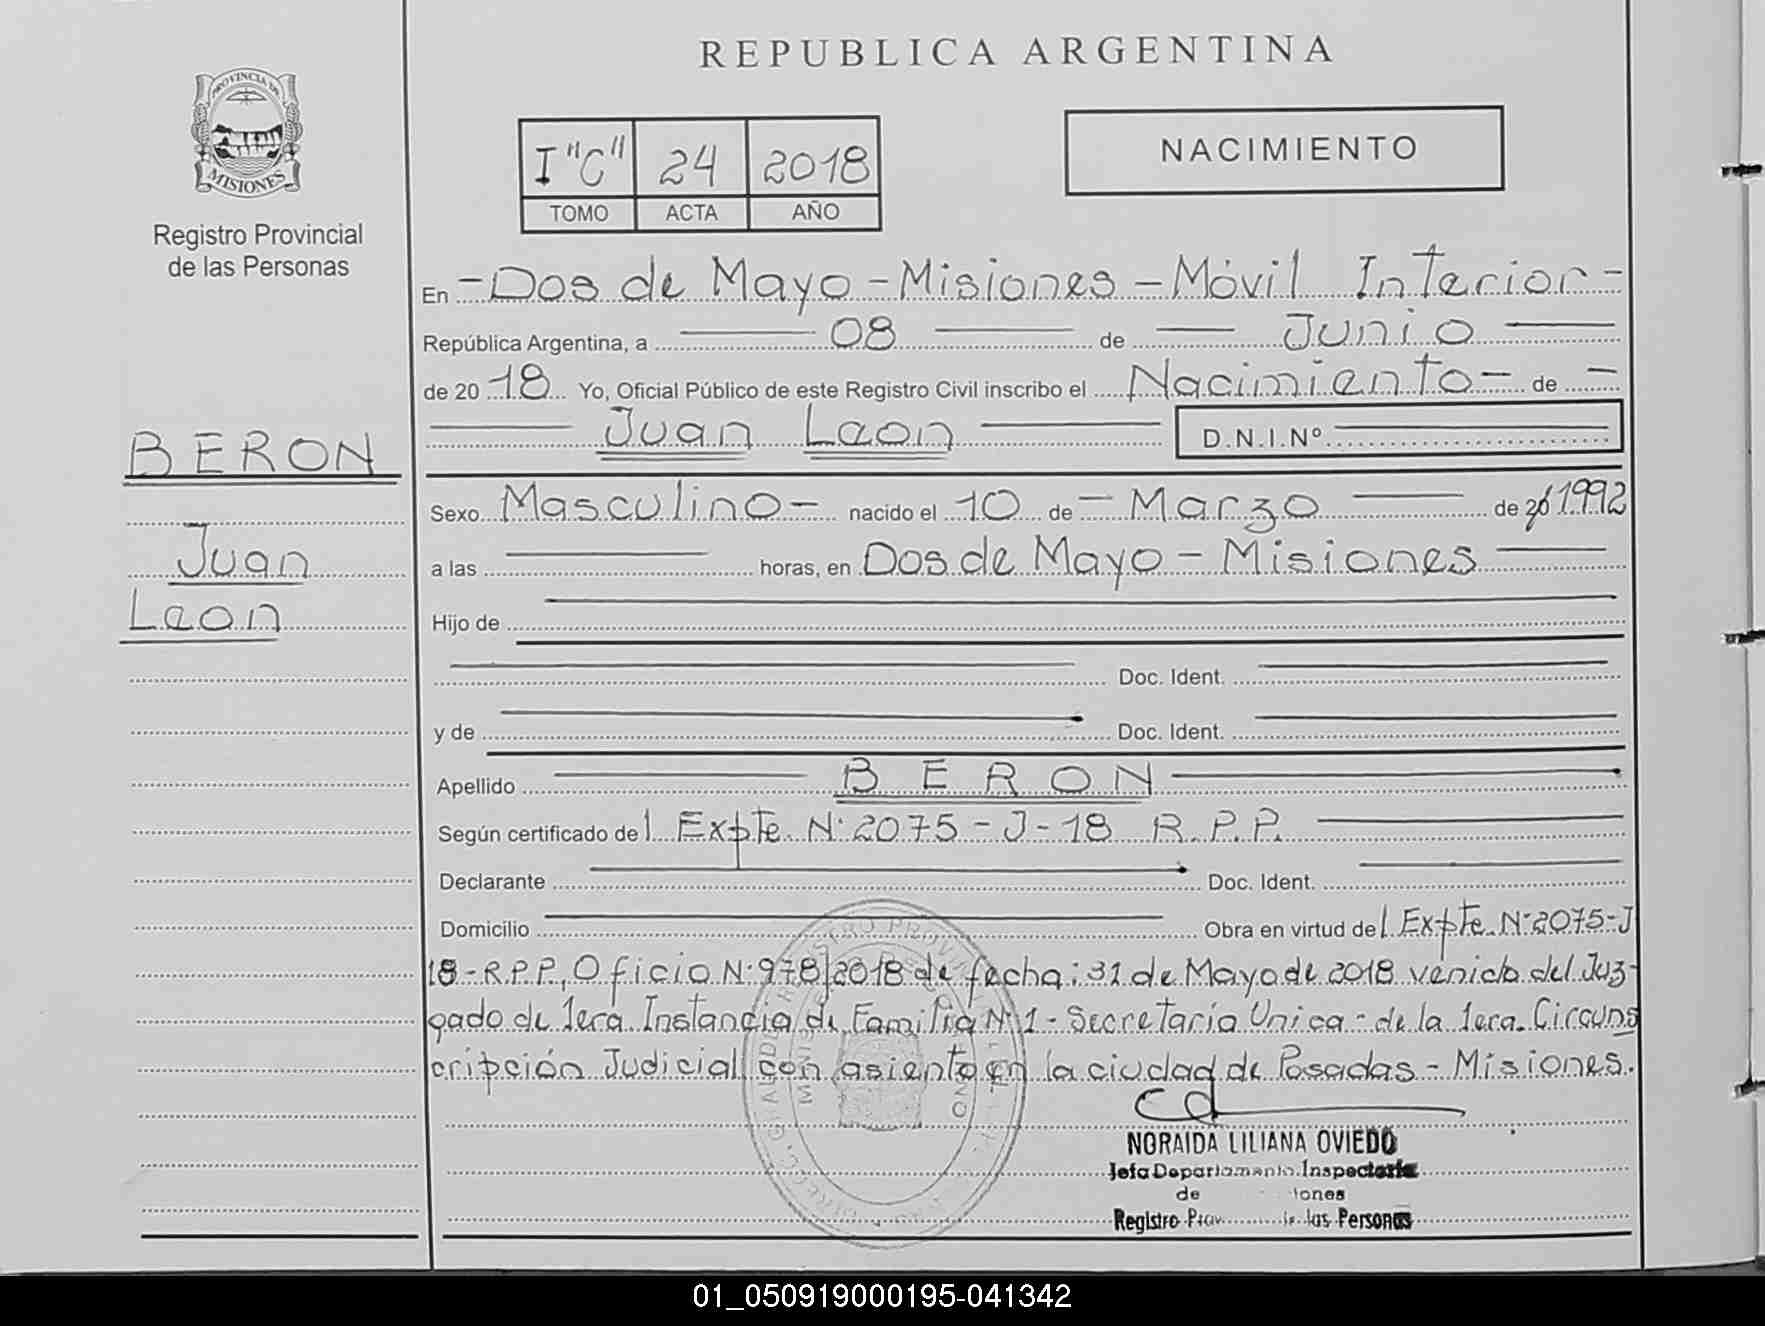 REPUBLICA ARGENTINA
PROVINCIA DE
MISIONES
Registro Provincial
de las Personas
I "C" 24 2018
TOMO ACTA AÑO
NACIMIENTO
En - Dos de Mayo - Misiones - Móvil Interior -
República Argentina, a 08 de Junio
de 20 18 Yo, Oficial Público de este Registro Civil inscribo el Nacimiento - de -
Juan Leon D.N.I.Nº
BERON
Juan
Leon
Sexo Masculino - nacido el 10 de - Marzo de 1992
a las horas, en Dos de Mayo - Misiones
Hijo de
Doc. Ident.
y de Doc. Ident.
Apellido BERON
Según certificado de l Expte. Nº 2075-J-18 R.P.P.
Declarante Doc. Ident.
Domicilio Obra en virtud de l Expte. Nº 2075-J
18-R.P.P., Oficio Nº 978/2018 de fecha: 31 de Mayo de 2018 venido del Juz-
gado de 1era. Instancia de Familia Nº 1 - Secretaría Unica - de la 1era. Circuns
cripción Judicial con asiento en la ciudad de Posadas - Misiones.
NORAIDA LILIANA OVIEDO
Jefa Departamento Inspectoria
de
Registro de las Personas
01_050919000195-041342